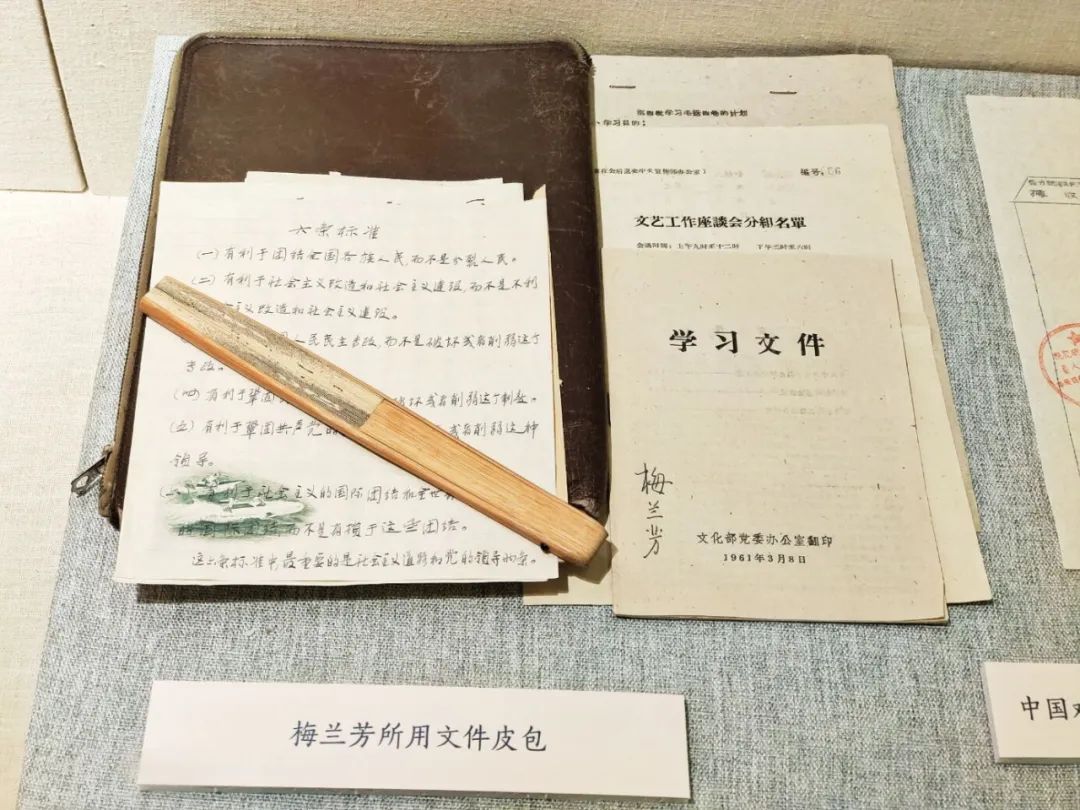 六条标准
(一) 有利于团结全国各族人民,而不是分裂人民。
(二) 有利于社会主义改造和社会主义建设,而不是不利
主义改造和社会主义建设。
人民民主专政,而不是破坏或者削弱这个
专政。
(四) 有利于巩固 破坏或者削弱这个制度。
(五) 有利于巩固共产党的 或者削弱这种
领导。
有利于社会主义的国际团结和全世界
而不是有损于这些团结。
这六条标准中最重要的是社会主义道路和党的领导两条。
学习毛
学习目的:
编号:
文艺工作座談会分組名單
会议时间:上午九时至十二时 下午三时至六时
学习文件
梅兰芳
文化部党委办公室翻印
1961年3月8日
梅兰芳所用文件皮包
中国